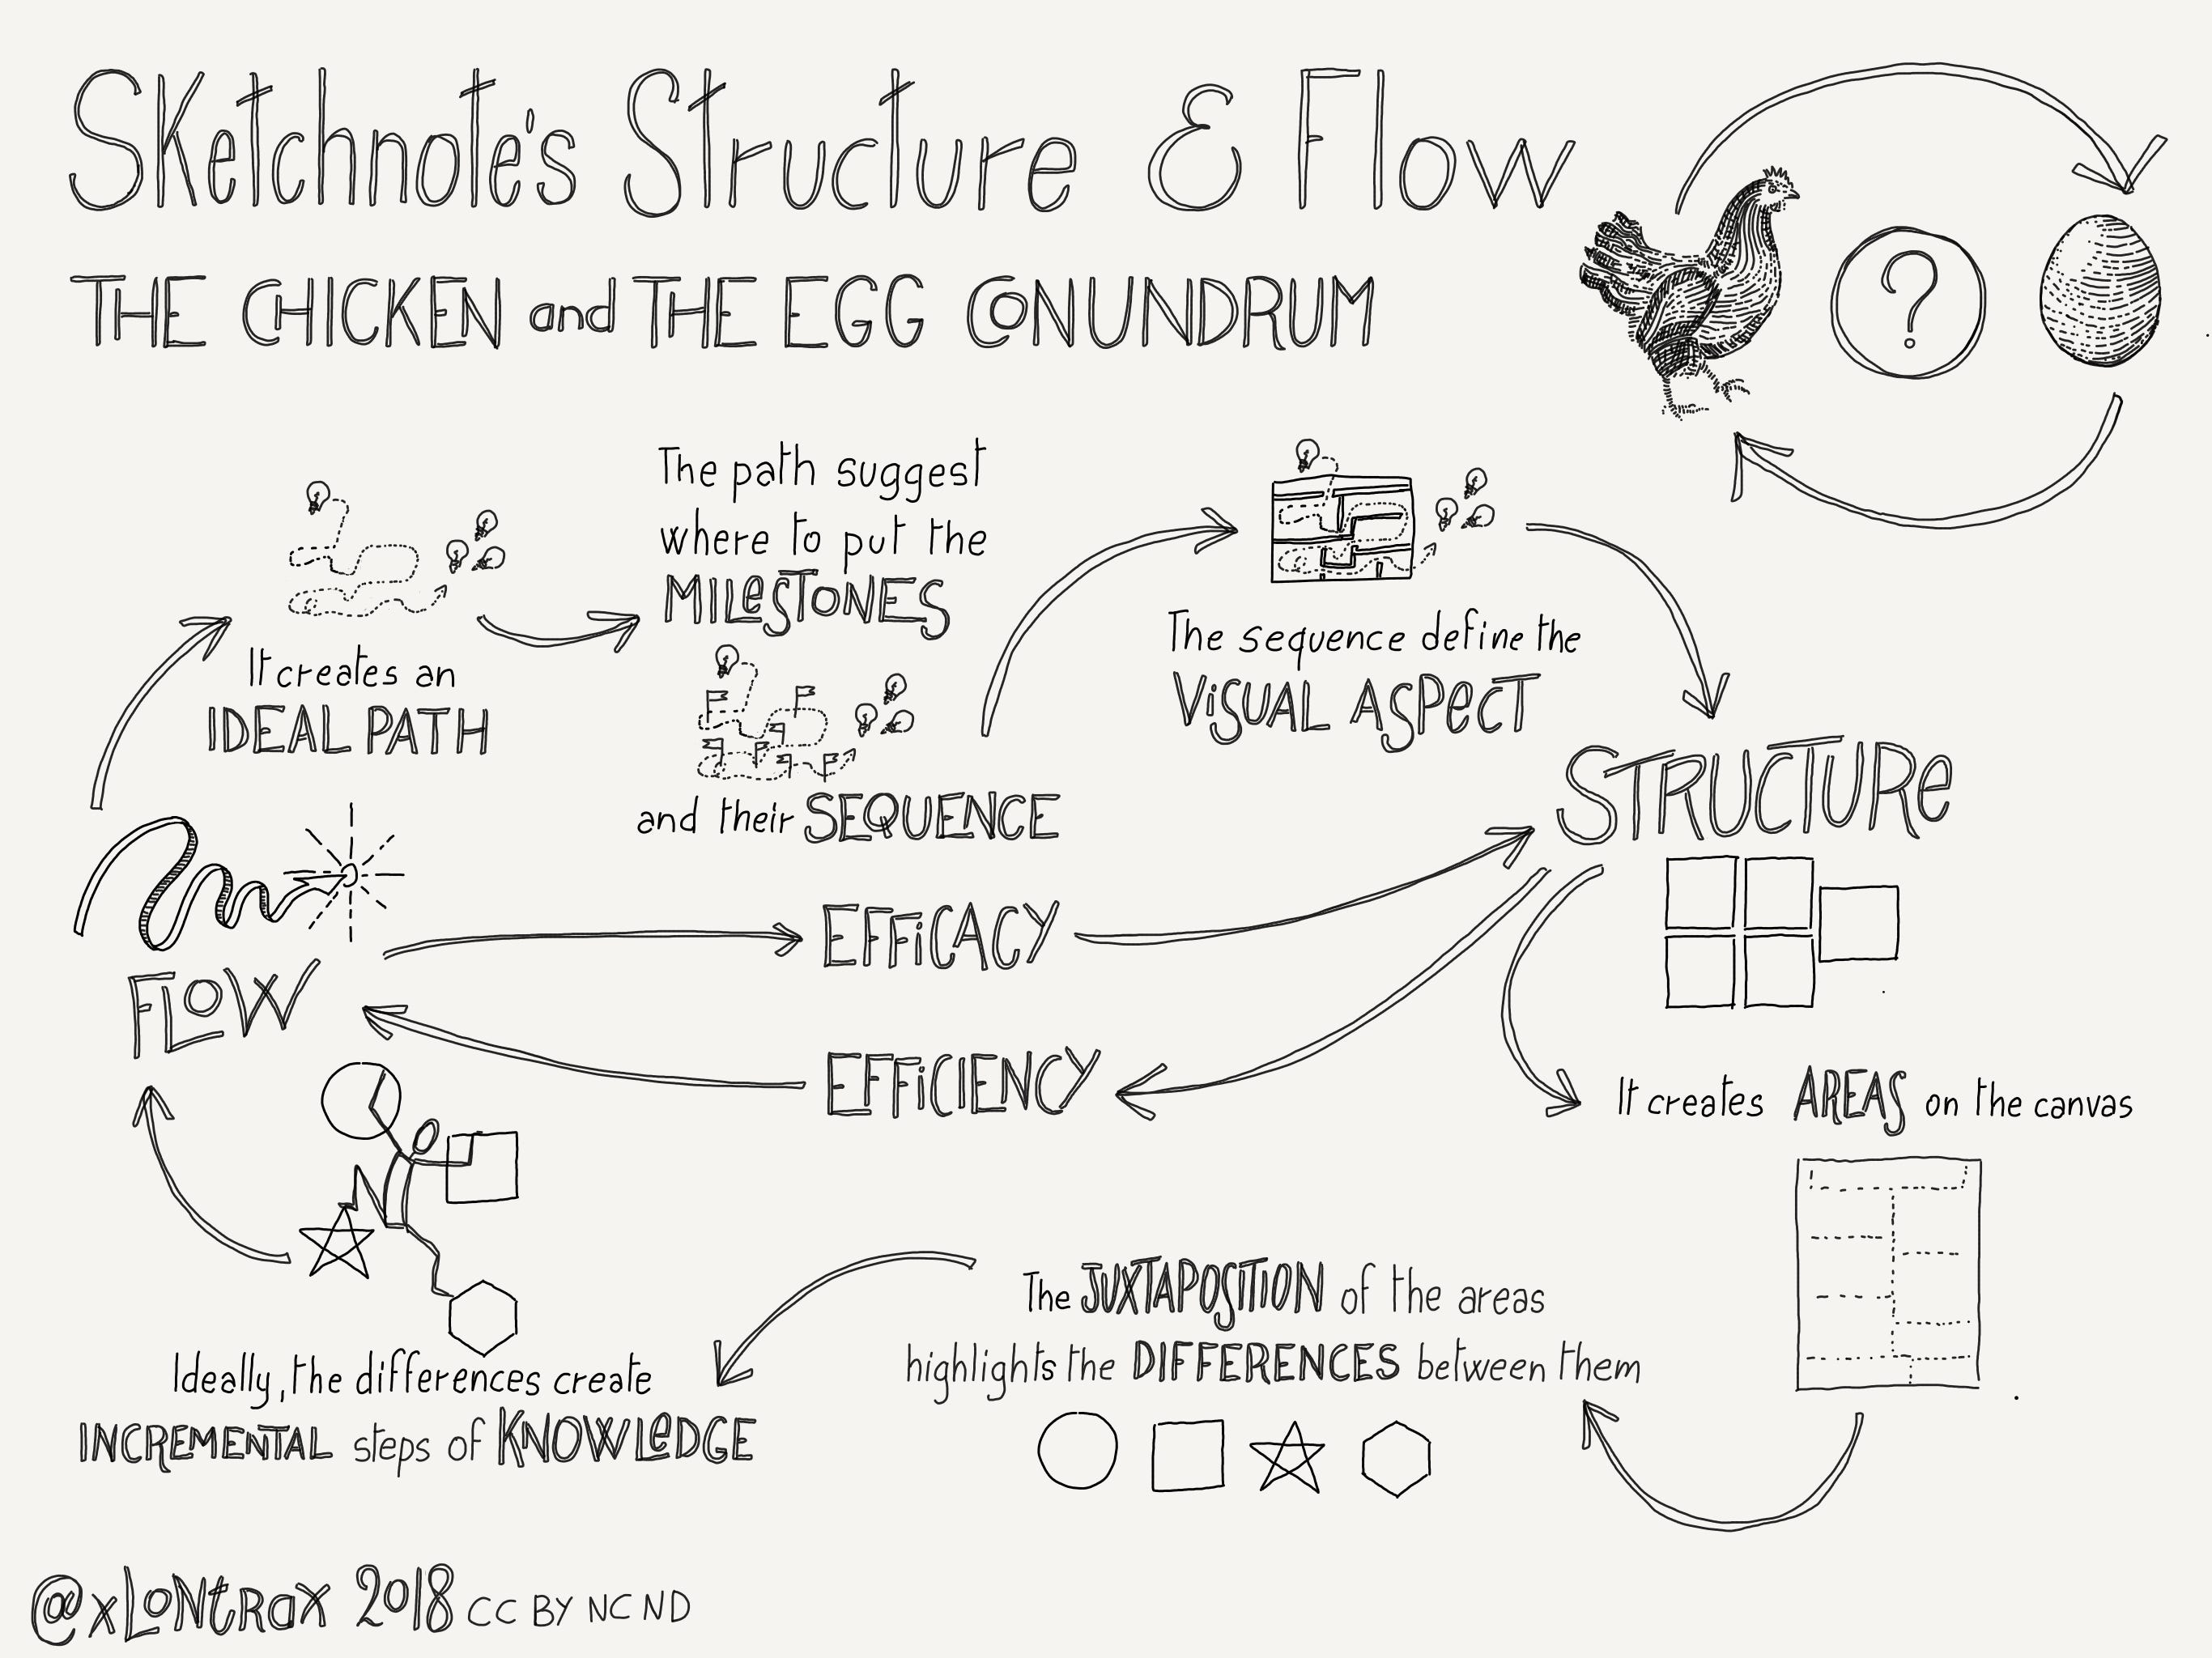 Sketchnote's Structure & Flow
THE CHICKEN and THE EGG CONUNDRUM
?
It creates an
IDEAL PATH
The path suggest
where to put the
MILESTONES
and their SEQUENCE
The sequence define the
VISUAL ASPECT
STRUCTURE
EFFICACY
FLOW
EFFICIENCY
It creates AREAS on the canvas
The JUXTAPOSITION of the areas
highlights the DIFFERENCES between them
Ideally, the differences create
INCREMENTAL steps of KNOWLEDGE
@xLONtRax 2018 CC BY NC ND